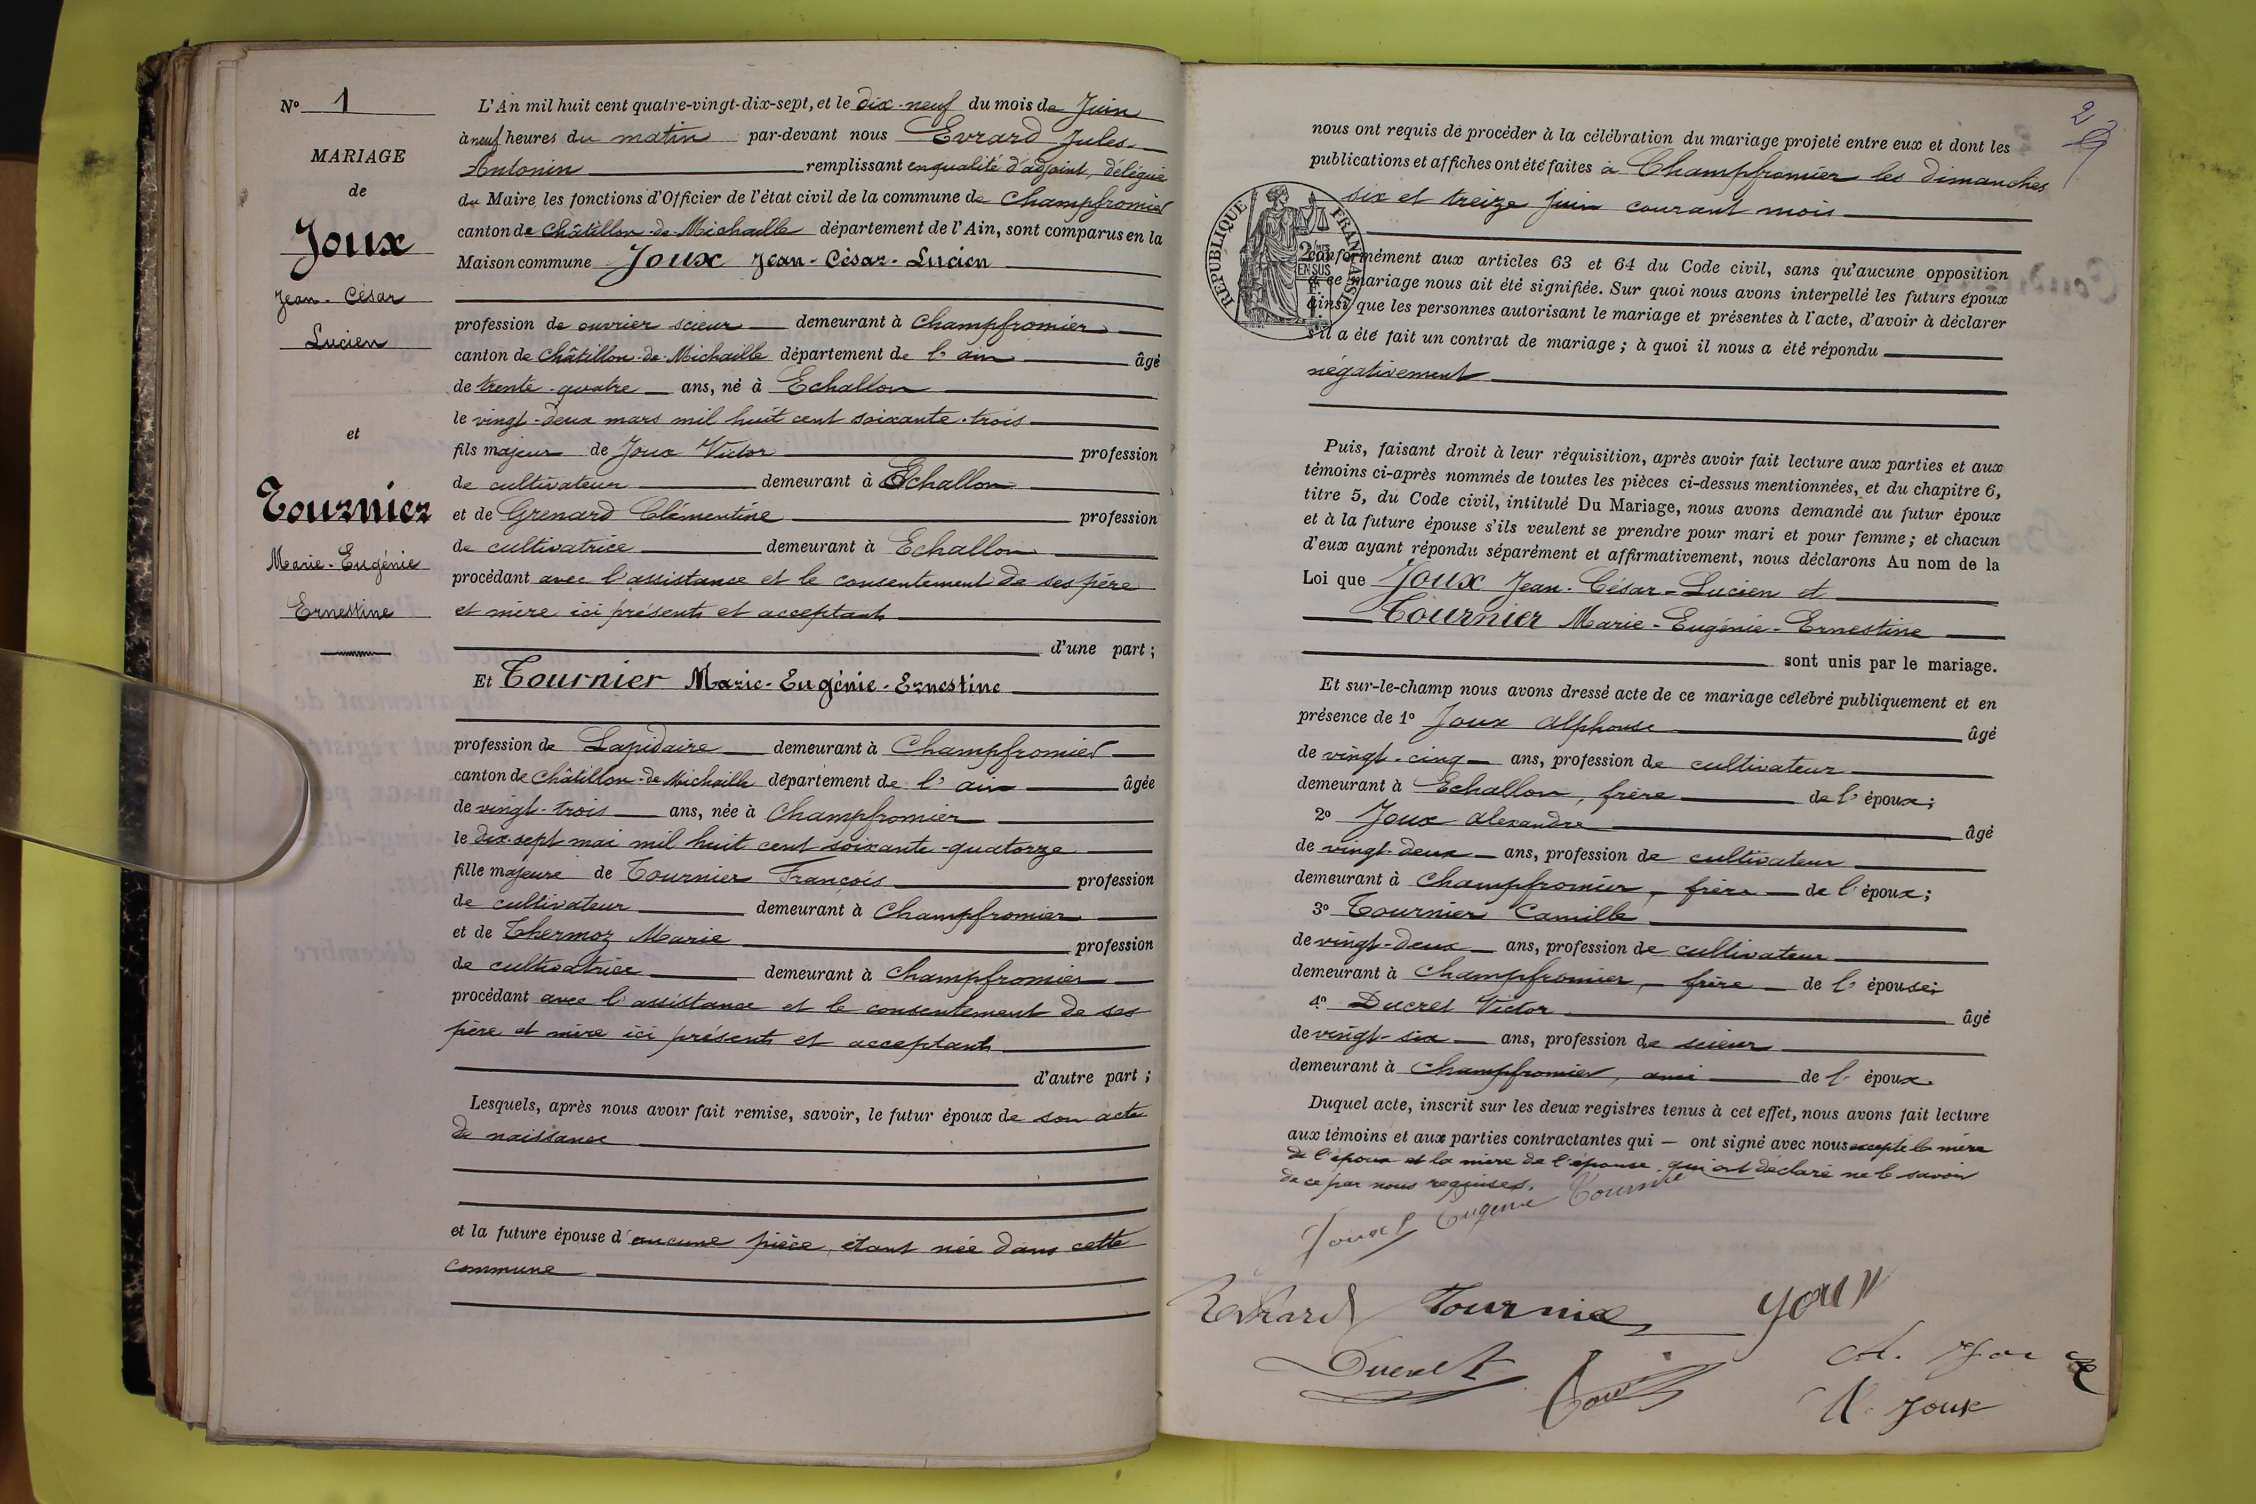 N° 1
MARIAGE
de
Joux
Jean-César
Lucien
et
Tournier
Marie-Eugénie
Ernestine
L'An mil huit cent quatre-vingt-dix-sept, et le dix-neuf du mois de Juin
à neuf heures du matin par-devant nous Evrard Jules-
Antonin remplissant en qualité d'adjoint, délégué
du Maire les fonctions d'Officier de l'état civil de la commune de Champfromier
canton de Châtillon-de-Michaille département de l'Ain, sont comparus en la
Maison commune Joux Jean-César-Lucien
profession de ouvrier scieur demeurant à Champfromier
canton de Châtillon-de-Michaille département de l'ain âgé
de trente-quatre ans, né à Echallon
le vingt-deux mars mil huit cent soixante-trois
fils majeur de Joux Victor profession
de cultivateur demeurant à Echallon
et de Grenard Clémentine profession
de cultivatrice demeurant à Echallon
procédant avec l'assistance et le consentement de ses père
et mère ici présents et acceptants
d'une part ;
Et Tournier Marie-Eugénie-Ernestine
profession de Lapidaire demeurant à Champfromier
canton de Châtillon-de-Michaille département de l'ain âgée
de vingt-trois ans, née à Champfromier
le dix-sept mai mil huit cent soixante-quatorze
fille majeure de Tournier François profession
de cultivateur demeurant à Champfromier
et de Thermoz Marie profession
de cultivatrice demeurant à Champfromier
procédant avec l'assistance et le consentement de ses
père et mère ici présents et acceptants
d'autre part ;
Lesquels, après nous avoir fait remise, savoir, le futur époux de son acte
de naissance
et la future épouse d'aucune pièce, étant née dans cette
commune
2
nous ont requis de procéder à la célébration du mariage projeté entre eux et dont les
publications et affiches ont été faites à Champfromier les dimanches
six et treize juin courant mois
RÉPUBLIQUE FRANÇAISE
EN SUS
conformément aux articles 63 et 64 du Code civil, sans qu'aucune opposition
à ce mariage nous ait été signifiée. Sur quoi nous avons interpellé les futurs époux
ainsi que les personnes autorisant le mariage et présentes à l'acte, d'avoir à déclarer
s'il a été fait un contrat de mariage ; à quoi il nous a été répondu
négativement
Puis, faisant droit à leur réquisition, après avoir fait lecture aux parties et aux
témoins ci-après nommés de toutes les pièces ci-dessus mentionnées, et du chapitre 6,
titre 5, du Code civil, intitulé Du Mariage, nous avons demandé au futur époux
et à la future épouse s'ils veulent se prendre pour mari et pour femme ; et chacun
d'eux ayant répondu séparément et affirmativement, nous déclarons Au nom de la
Loi que Joux Jean-César-Lucien et
Tournier Marie-Eugénie-Ernestine
sont unis par le mariage.
Et sur-le-champ nous avons dressé acte de ce mariage célébré publiquement et en
présence de 1° Joux Alphonse âgé
de vingt-cinq ans, profession de cultivateur
demeurant à Echallon, frère de l'époux ;
2° Joux Alexandre âgé
de vingt-deux ans, profession de cultivateur
demeurant à Champfromier, frère de l'époux ;
3° Tournier Camille
de vingt-deux ans, profession de cultivateur
demeurant à Champfromier, frère de l'épouse ;
4° Ducret Victor âgé
de vingt-six ans, profession de scieur
demeurant à Champfromier, ami de l'époux.
Duquel acte, inscrit sur les deux registres tenus à cet effet, nous avons fait lecture
aux témoins et aux parties contractantes qui — ont signé avec nous excepté la mère
de l'époux et la mère de l'épouse qui ont déclaré ne le savoir
de ce par nous requises.
Joux L Eugénie Tournier
Evrard Tournier Joux
Ducret
A. Joux